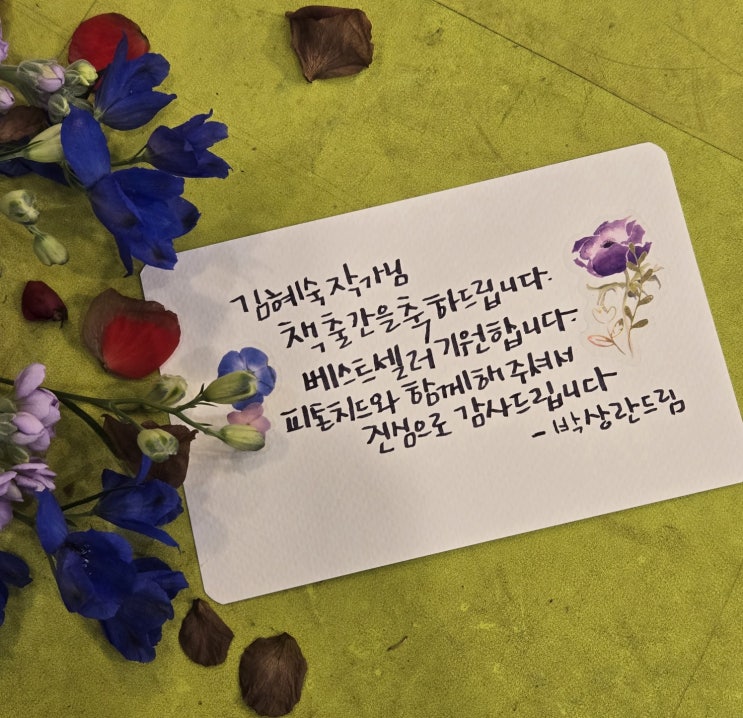 김혜숙 작가님
책 출간을 축하드립니다.
베스트셀러 기원합니다.
피톤치드와 함께해 주셔서
진심으로 감사드립니다
- 박상란드림